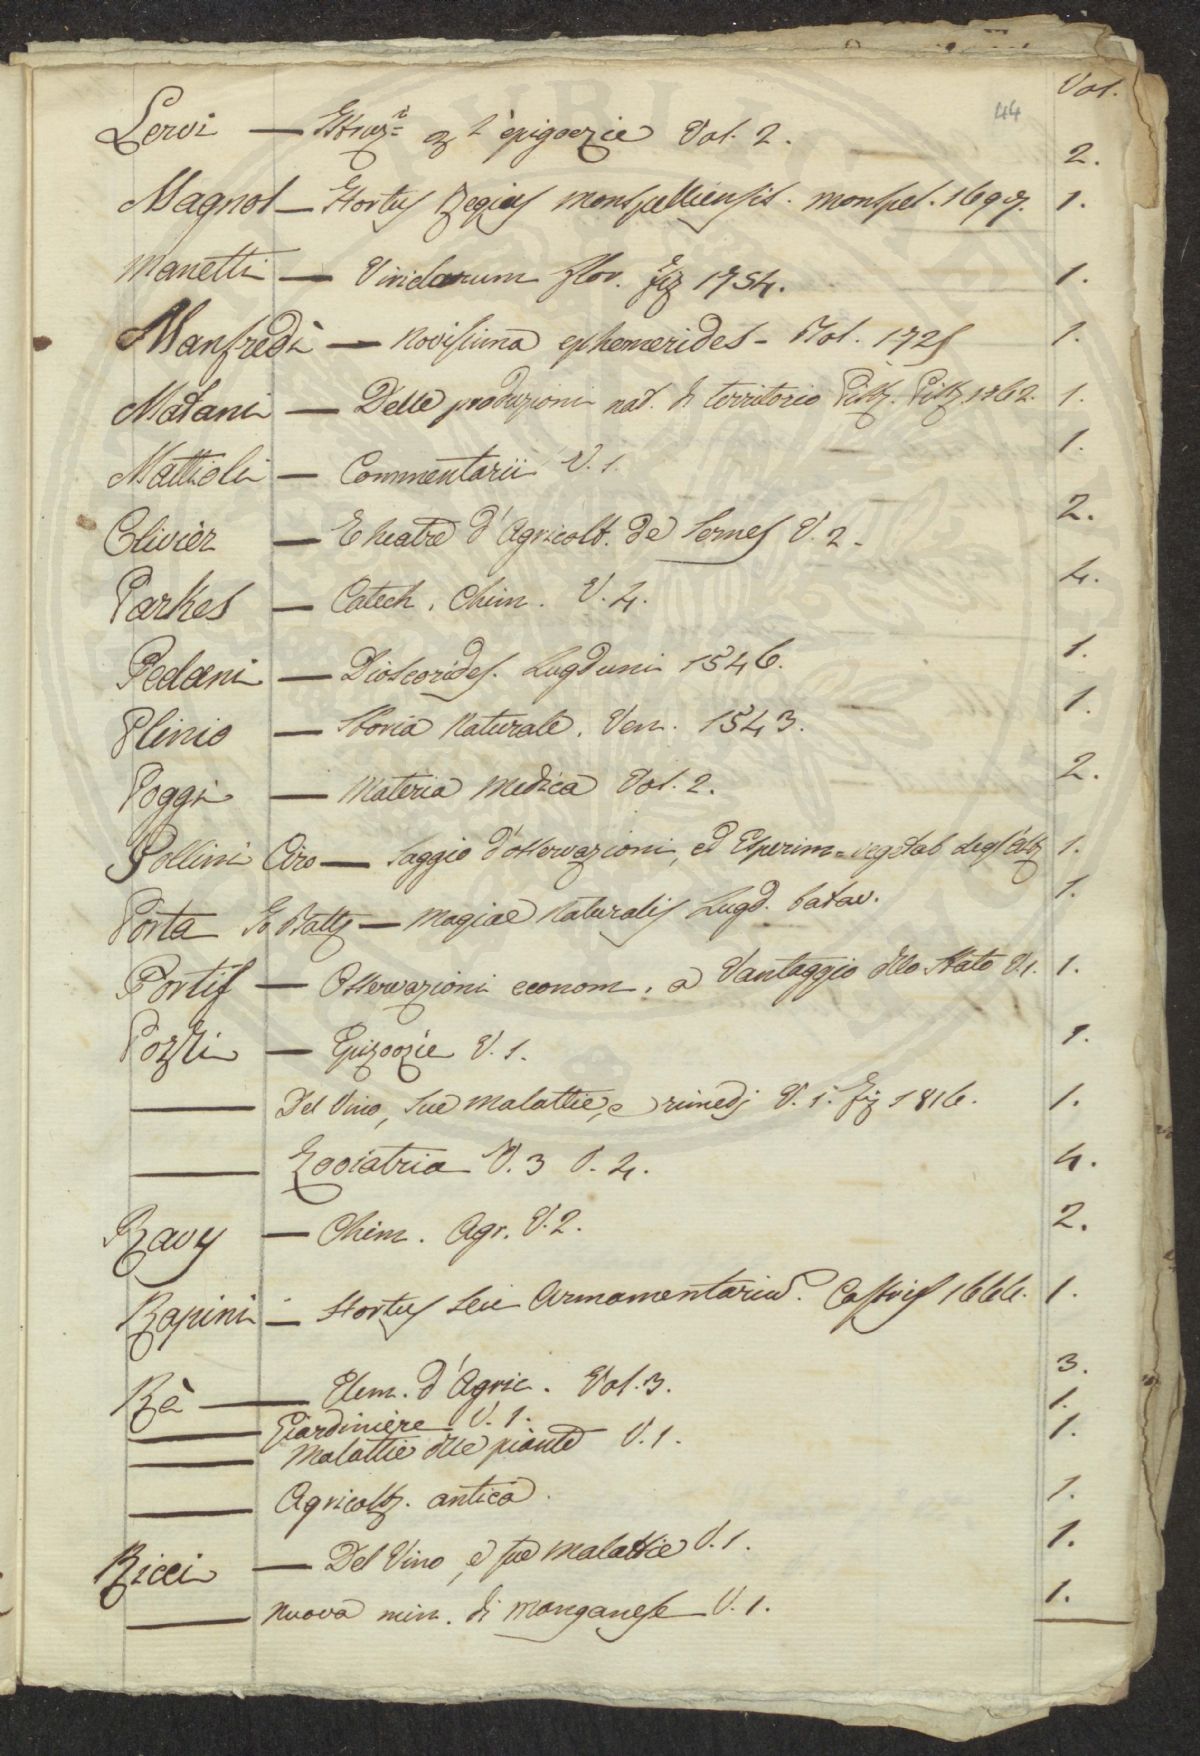 Vol.
44
Leroi — Istruz. p l'epizoozie Vol. 2. 2.
Magnol — Hortus Regius monspelliensis. monspel. 1697. 1.
Manetti — Viridarium flor. Fiz 1754. 1.
Manfredi — Novissima ephemerides - Bol. 1725 1.
Matani — Delle produzioni nat. di territorio Pistz. Pistz 1762. 1.
Mattioli — Commentarii V. 1. 1.
Olivièr — Theatre d'Agricolt. de Serres V. 2. 2.
Parkes — Catech. Chim. V. 4. 4.
Pedani — Dioscorides. Lugduni 1546. 1.
Plinio — Storia Naturale. Ven. 1543. 1.
Poggi — Materia Medica Vol. 2. 2.
Pollini Ciro — Saggio d'osservazioni, ed Esperim. vegetab. 1.
Porta Go Batta — Magiae Naturalis Lugd. batav. 1.
Portis — Osservazioni econom. a Vantaggio dello Stato V. 1. 1.
Pozzi — Epizoozie V. 1. 1.
— Del Vino, sue malattie, e rimedj V. 1. Fiz 1816. 1.
— Zooiatria V. 3 V. 4. 4.
Ravy — Chim. Agr. V. 2. 2.
Rapini — Hortus seu Armamentariu. Castris 1666. 1.
Rè — Elem. d'Agric. Vol. 3. 3.
— Giardiniere V. 1. 1.
— Malattie delle piante V. 1. 1.
— Agricoltz. antica. 1.
Ricci — Del Vino, e sue malattie V. 1. 1.
— Nuova min. di manganese V. 1. 1.